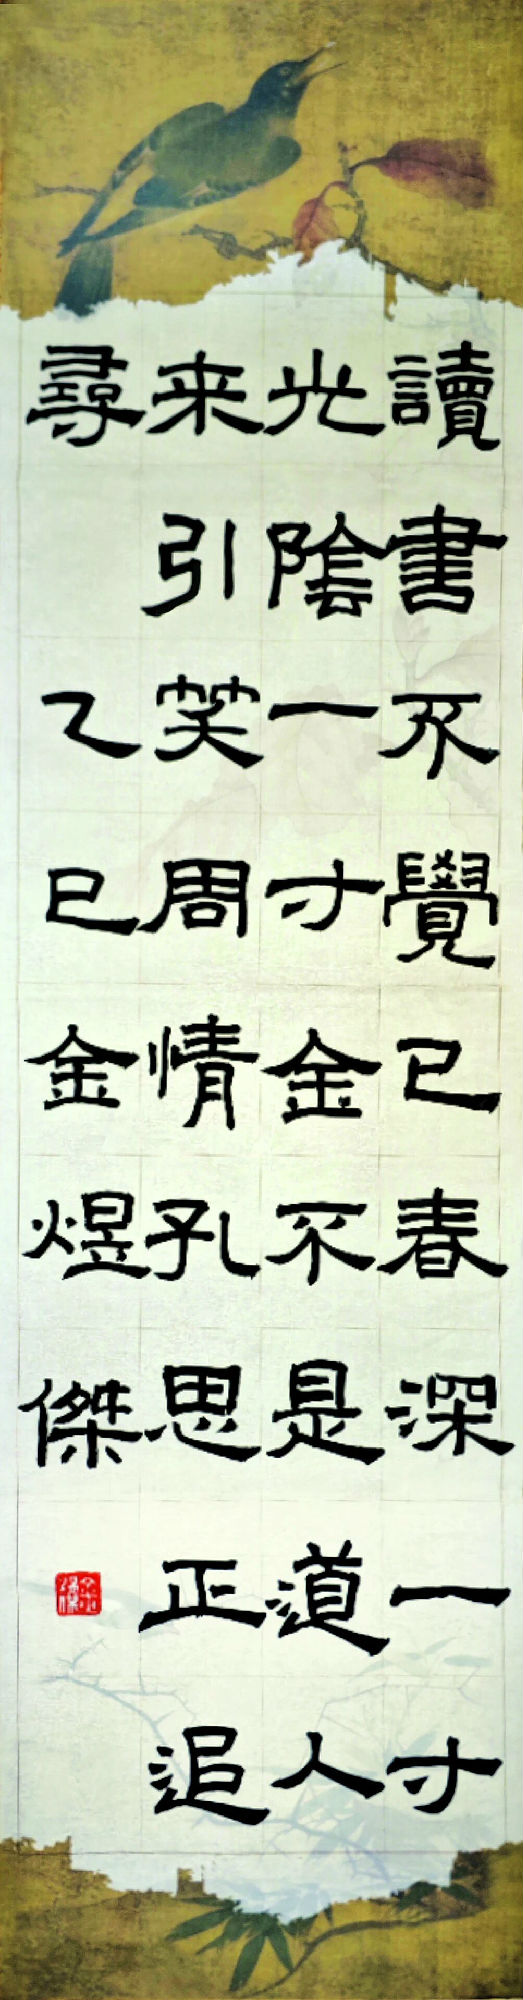 讀書不覺已春深一寸
光陰一寸金不是道人
来引笑周情孔思正追
尋
乙巳金煜傑